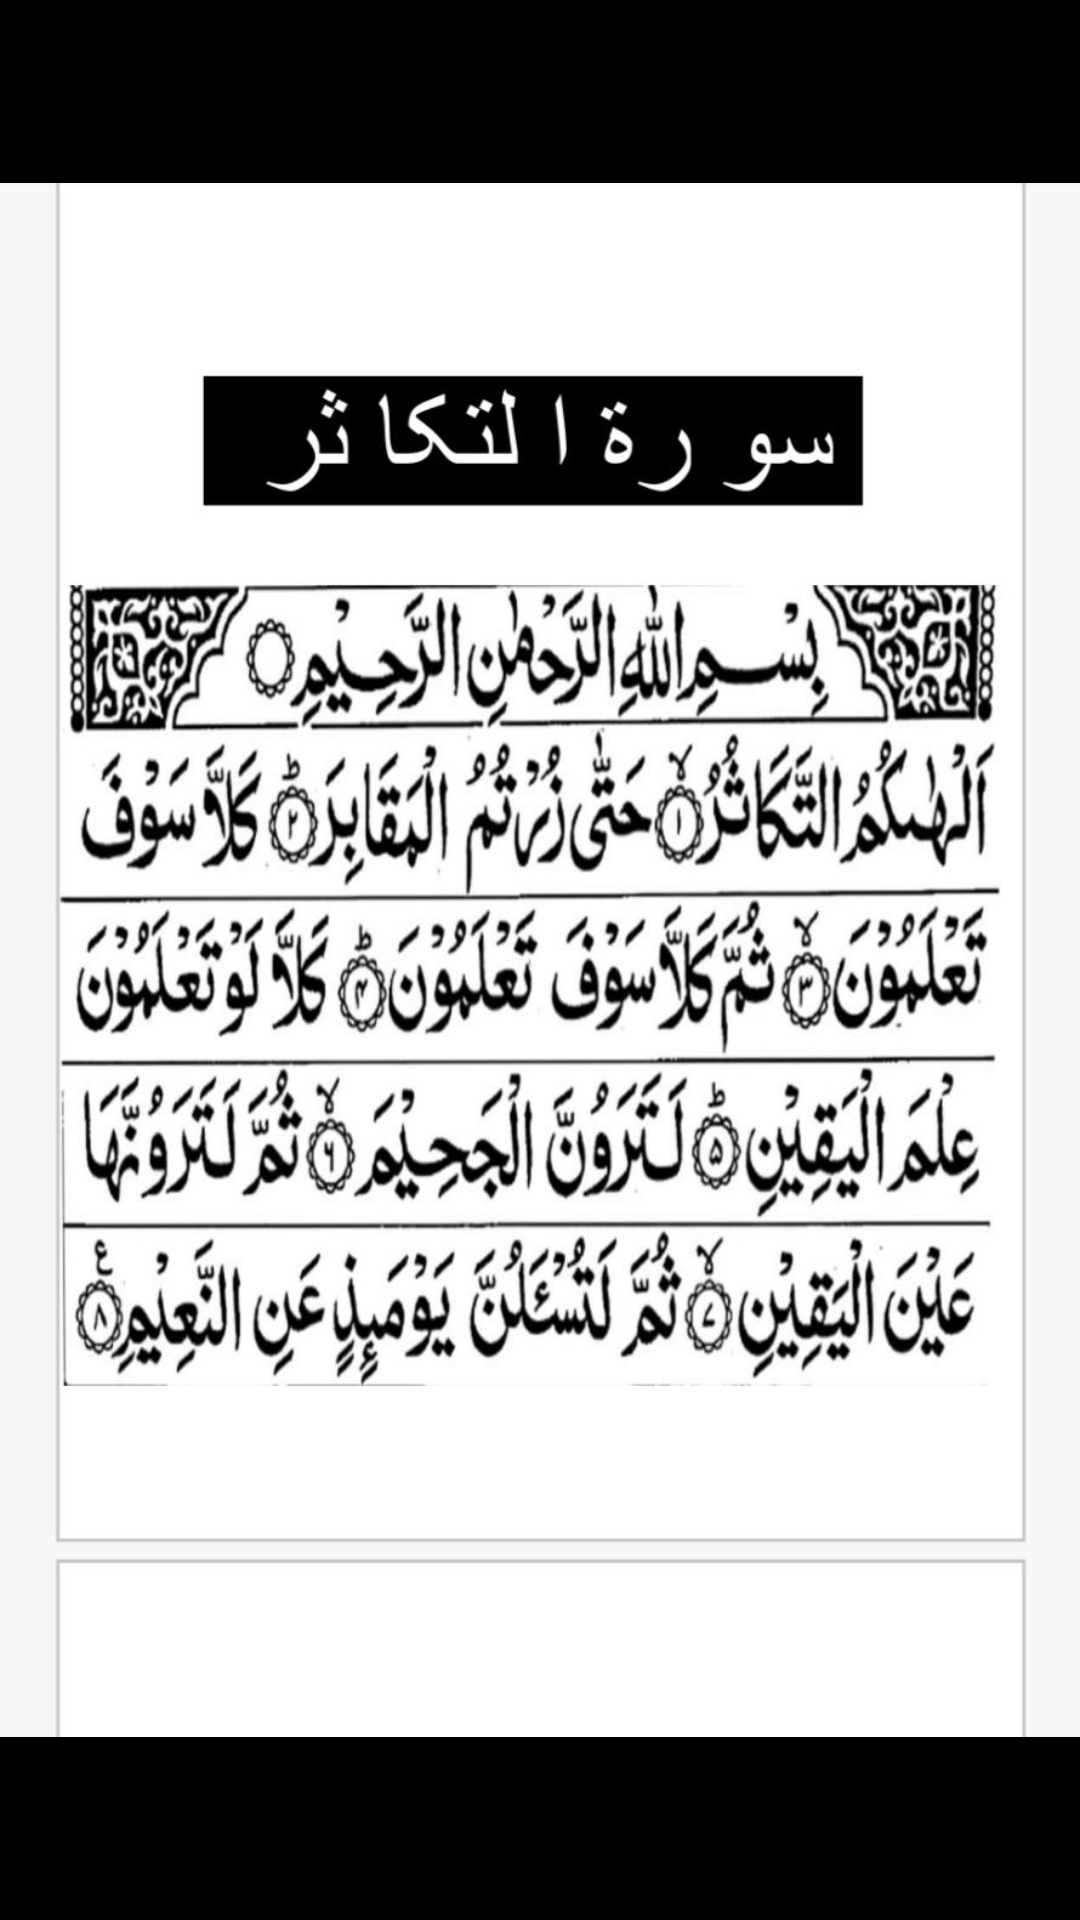 سورة التكاثر
بِسْمِ اللهِ الرَّحْمٰنِ الرَّحِيْمِ
اَلْهٰىكُمُ التَّكَاثُرُ ۙ﴿۱﴾ حَتّٰى زُرْتُمُ الْمَقَابِرَ ؕ﴿۲﴾ كَلَّا سَوْفَ
تَعْلَمُوْنَ ۙ﴿۳﴾ ثُمَّ كَلَّا سَوْفَ تَعْلَمُوْنَ ؕ﴿۴﴾ كَلَّا لَوْ تَعْلَمُوْنَ
عِلْمَ الْيَقِيْنِ ؕ﴿۵﴾ لَتَرَوُنَّ الْجَحِيْمَ ۙ﴿۶﴾ ثُمَّ لَتَرَوُنَّهَا
عَيْنَ الْيَقِيْنِ ۙ﴿۷﴾ ثُمَّ لَتُسْـَٔلُنَّ يَوْمَىِٕذٍ عَنِ النَّعِيْمِ ﴿۸﴾ ع